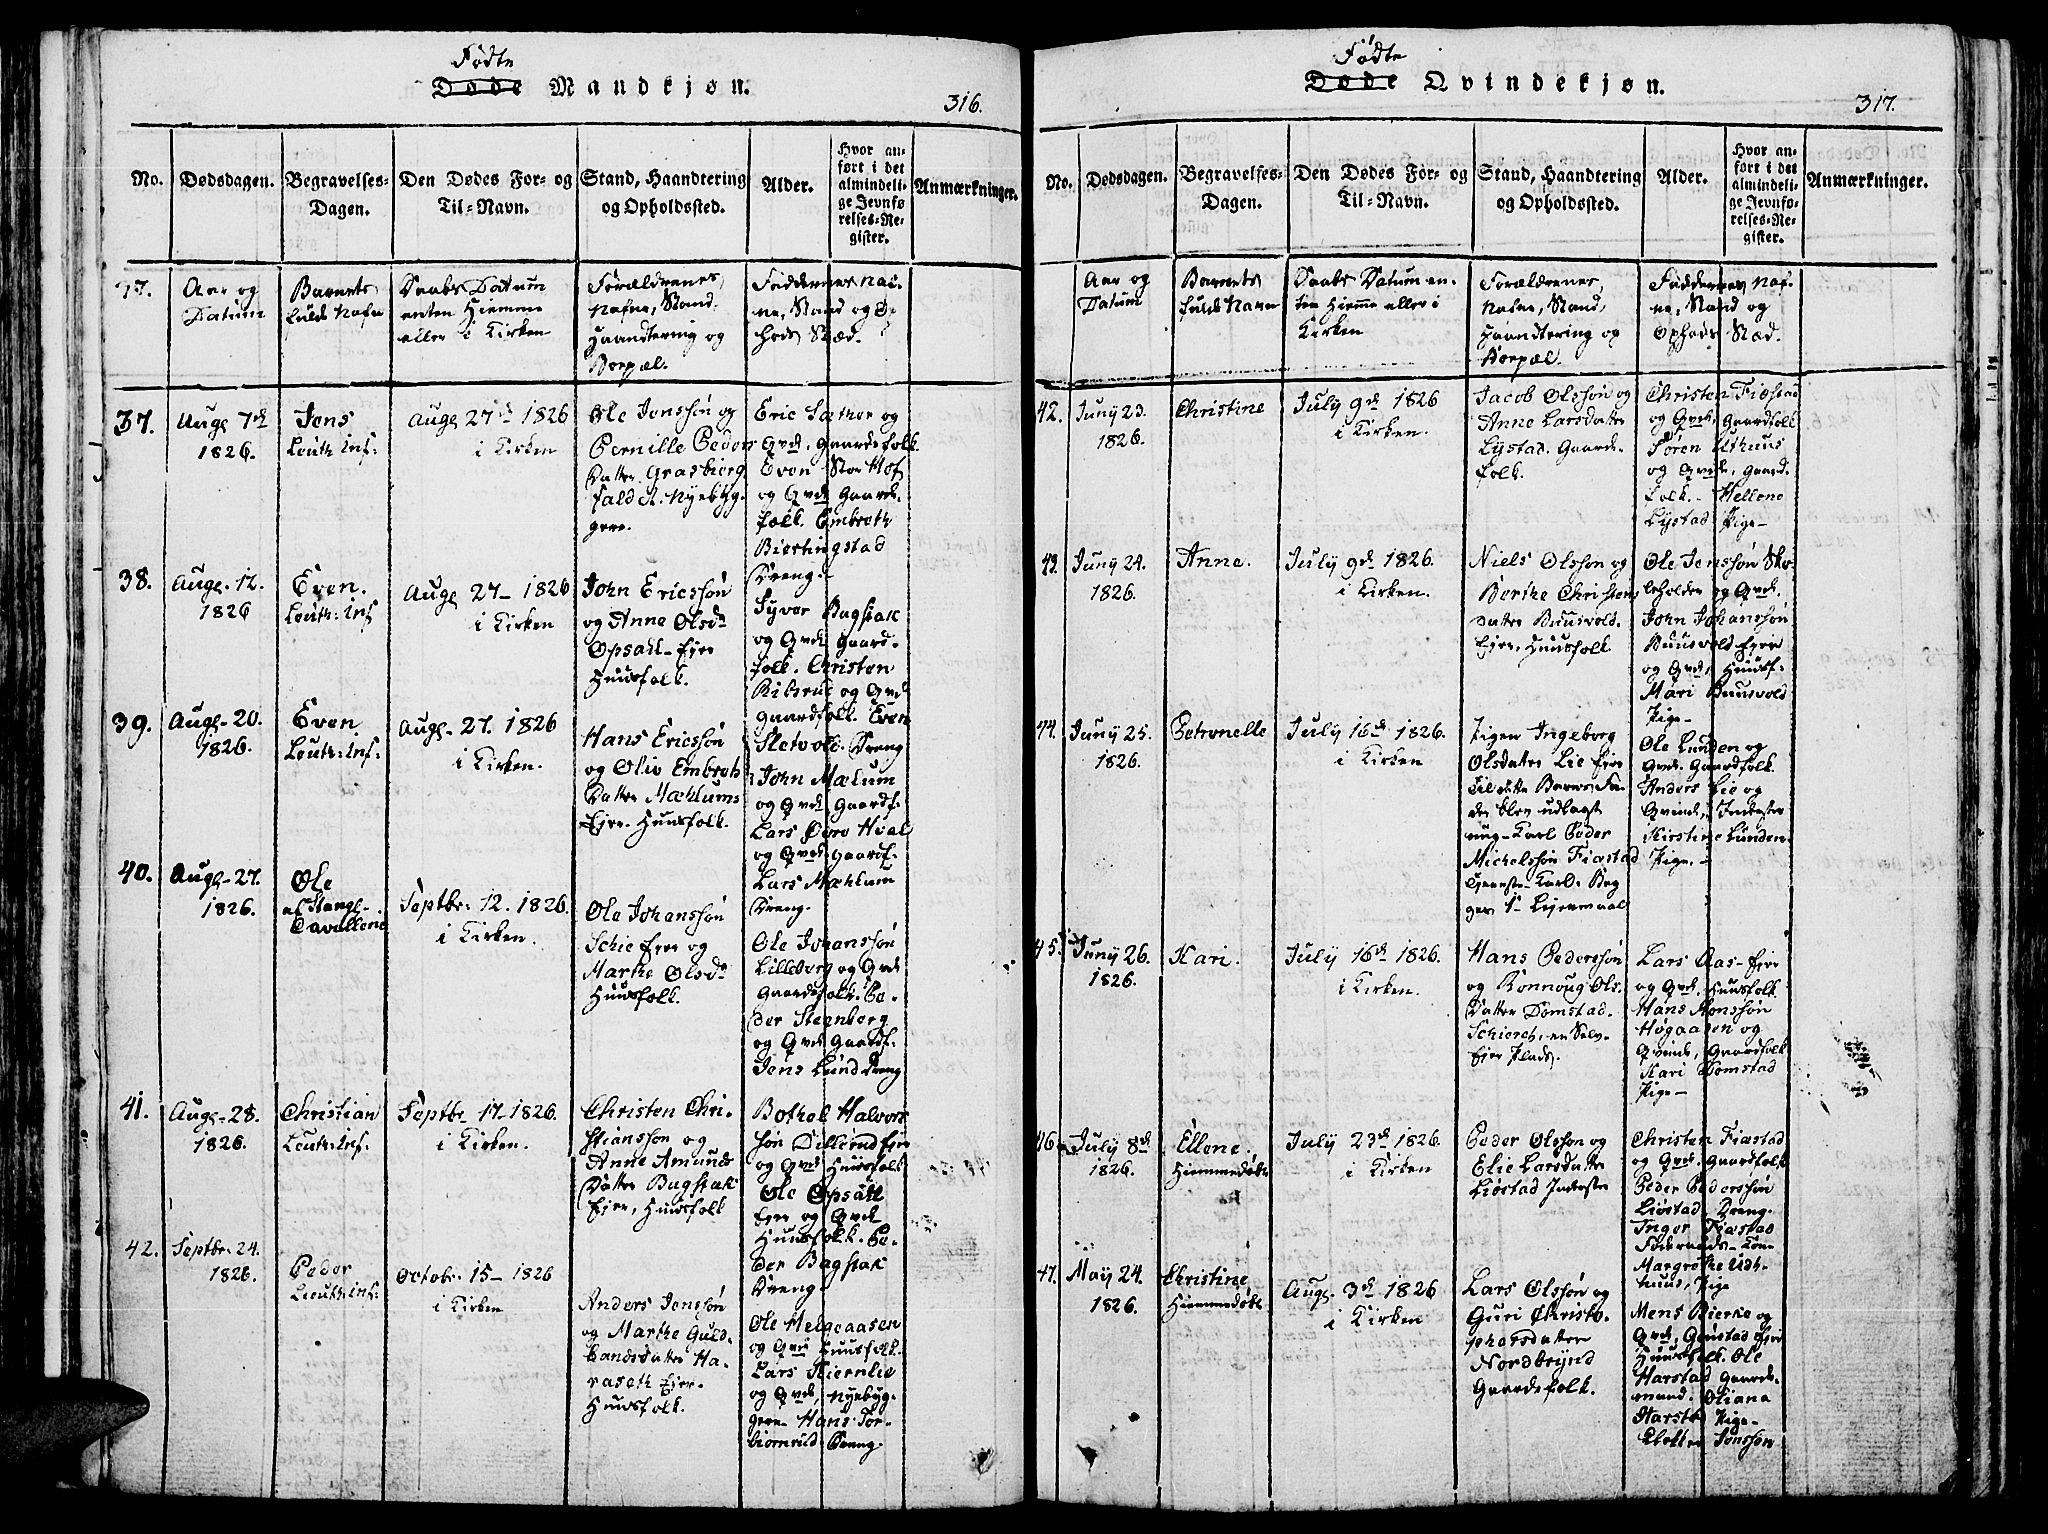 Fødte
Døde Mandkjøn.
316.
No.
Dødsdagen.
Begravelses-
Dagen.
Den Dødes For- og
Til-Navn.
Stand, Haandtering
og Opholdssted.
Alder.
Hvor an-
ført i det
almindeli-
ge Jevnfø-
relses-Re-
gister.
Anmærkninger.
Aar og
Datum
Barnets
fulde Nafn
Daabs Datum
enten Hiemme
eller i Kirken
Forældrenes
Nafne, Stand
Haandtering og
Boepæl.
Faddernes Naf-
ne, Stand og Op-
holds Stæd.
37.
Aug 7de
1826.
Jens
Aug 27de 1826
i Kirken
Ole Jonssøn og
Pernille Peders
Datter Grasbierg
fald A. Nyebyg-
gere.
Eric Sæther og
Qvde, Gaardsfolk
Even Stor Hof
og Qvde Gaards-
folk. Embreth
Biertingstad
Dreng.-
38.
Aug. 12.
1826
Even.
Aug 27 - 1826
i Kirken
John Ericssøn
og Anne Olsdr
Opsatt-Ejer
Huusfolk.
Syver Bagstak
og Qvde Gaard-
folk. Christen
og Qvde
Gaardfolk. Even
Sletvold. Dreng
39.
Aug-20.
1826.
Even
Aug-27. 1826
i Kirken.
Hans Ericssøn
og Oliv Embreths
Datter Mæhlums
Ejer. Huusfolk.
John Mælum
og Qvde Gaardf.
Lars Øvre Hval
og Qvde Gaardf-
Lars Mæhlum
Dreng.
40.
Aug-27.
1826.
Ole
Septbr. 12. 1826.
i Kirken.
Ole Johanssøn
Schie Ejer og
Marthe Olsdr
Huusfolk.
Ole Johanssøn
Lilleborg og Qvde
Gaardsfolk. Pe-
der Steenberg
og Qvde Gaardf-
Jens Lund Dreng
41.
Aug-28.
1826.
Christian
Septbr 17-1826.
i Kirken.
Christen Chri-
stianssøn og
Anne Amunds
Datter Bagstak
Ejer, Huusfolk
Bothol Halvors
søn Dillerud Ejer
og Qvde Huusfolk
Ole Opsatt
Ejer og Qvde
Huusfolk. Pe-
der Bagstak
Dreng.
42.
Septbr. 24.
1826.
Peder
Octobr. 15- 1826
i Kirken
Anders Jonssøn
og Marthe Guld-
bandsdatter Ha-
raseth Ejer-
Huusfolk.
Ole Helgeaasen
og Qvde Huusfolk.
Lars Kiernlie
og Qvde, Nyebyg-
gere- Hans Tor-
biørnrud Dreng.
Fødte
Døde Qvindekjøn.
317.
No.
Dødsdagen.
Begravelses-
Dagen.
Den Dødes For- og
Til-Navn.
Stand, Haandtering
og Opholdssted.
Alder.
Hvor an-
ført i det
almindeli-
ge Jevnfø-
relses-Re-
gister.
Anmærkninger.
Aar og
Datum
Barnets
fulde Navn
Daabs Datum en-
ten Hiemme eller i
Kirken
Forældrenes,
Nafne, Stand,
Haandtering og
Boepæl.
Faddernes Naf-
ne, Stand og
Opholds Stæd.
42.
Juny 23.
1826.
Christine
July 9de 1826
i Kirken.
Jacob Olssøn og
Anne Larsdatter
Lystad. Gaards-
folk.
Christen Fiæstad
og Qvde, Gaardfolk
Søren Uthuus
og Qvde, Gaard-
folk. - Hellene
Lystad Pige-
43.
Juny 24.
1826.
Anne.
July 9de 1826.
i Kirken.
Niels Olssøn og
Berthe Christens
datter Buusvold.
Ejer, Huusfolk
Ole Jonssøn Sko-
leholder og Qvde.
John Johanssøn
Buusvold Ejer
og Qvde, Huusf-
Mari Buusvold
Pige-
44.
Juny 25.
1826.
Petronelle
July 16de 1826.
i Kirken
Pigen Ingeborg
Olsdatter Lie Ejer
Til dette Barns Fa-
der blev udlagt
ung-Karl Peder
Michelssøn Fiæstad
Tjeneste-Karl. Beg
ges 1te Lejermaal
Ole Lunden og
Qvde. Gaardfolk.
Anders Lie og
Qvinde, Inderster
Kirstine Lunden
Pige.-
45.
Juny 26.
1826.
Kari.
July 16de 1826.
i Kirken.
Hans Pederssøn
og Ronnoug Ols-
Datter Domstad-
en Selv-
Ejer Plads.
Lars Aas-Ejer
og Qvde. Huusfolk
Hans Monssøn
Høgaasen og
Qvinde, Gaardfolk
Kari Domstad
Pige-
46.
July 8de
1826.
Ellene,
Hiemmedøbt
July 23de 1826.
i Kirken
Peder Olssøn og
Elie Larsdatter
Liøstad Inderster
Christen Fiæstad
og Qvde. Gaardfolk
Peder Pederssøn
Liøstad Dreng-
Inger Fiæstad
Føderaads-Kone
Margrethe Udt-
huus, Pige
47.
May 24.
1826.
Christine
Hiemmedøbt
Aug. 3de 1826
i Kirken
Lars Olssøn og
Guri Christo-
phersdatter
Nordbrynd
Gaardsfolk.
Mens Bierke og
Qvde, Gaustad Ejer
Huusfolk. Ole
Harstad Gaards-
mand. Oliana
Harstad Pige-
Jonssøn